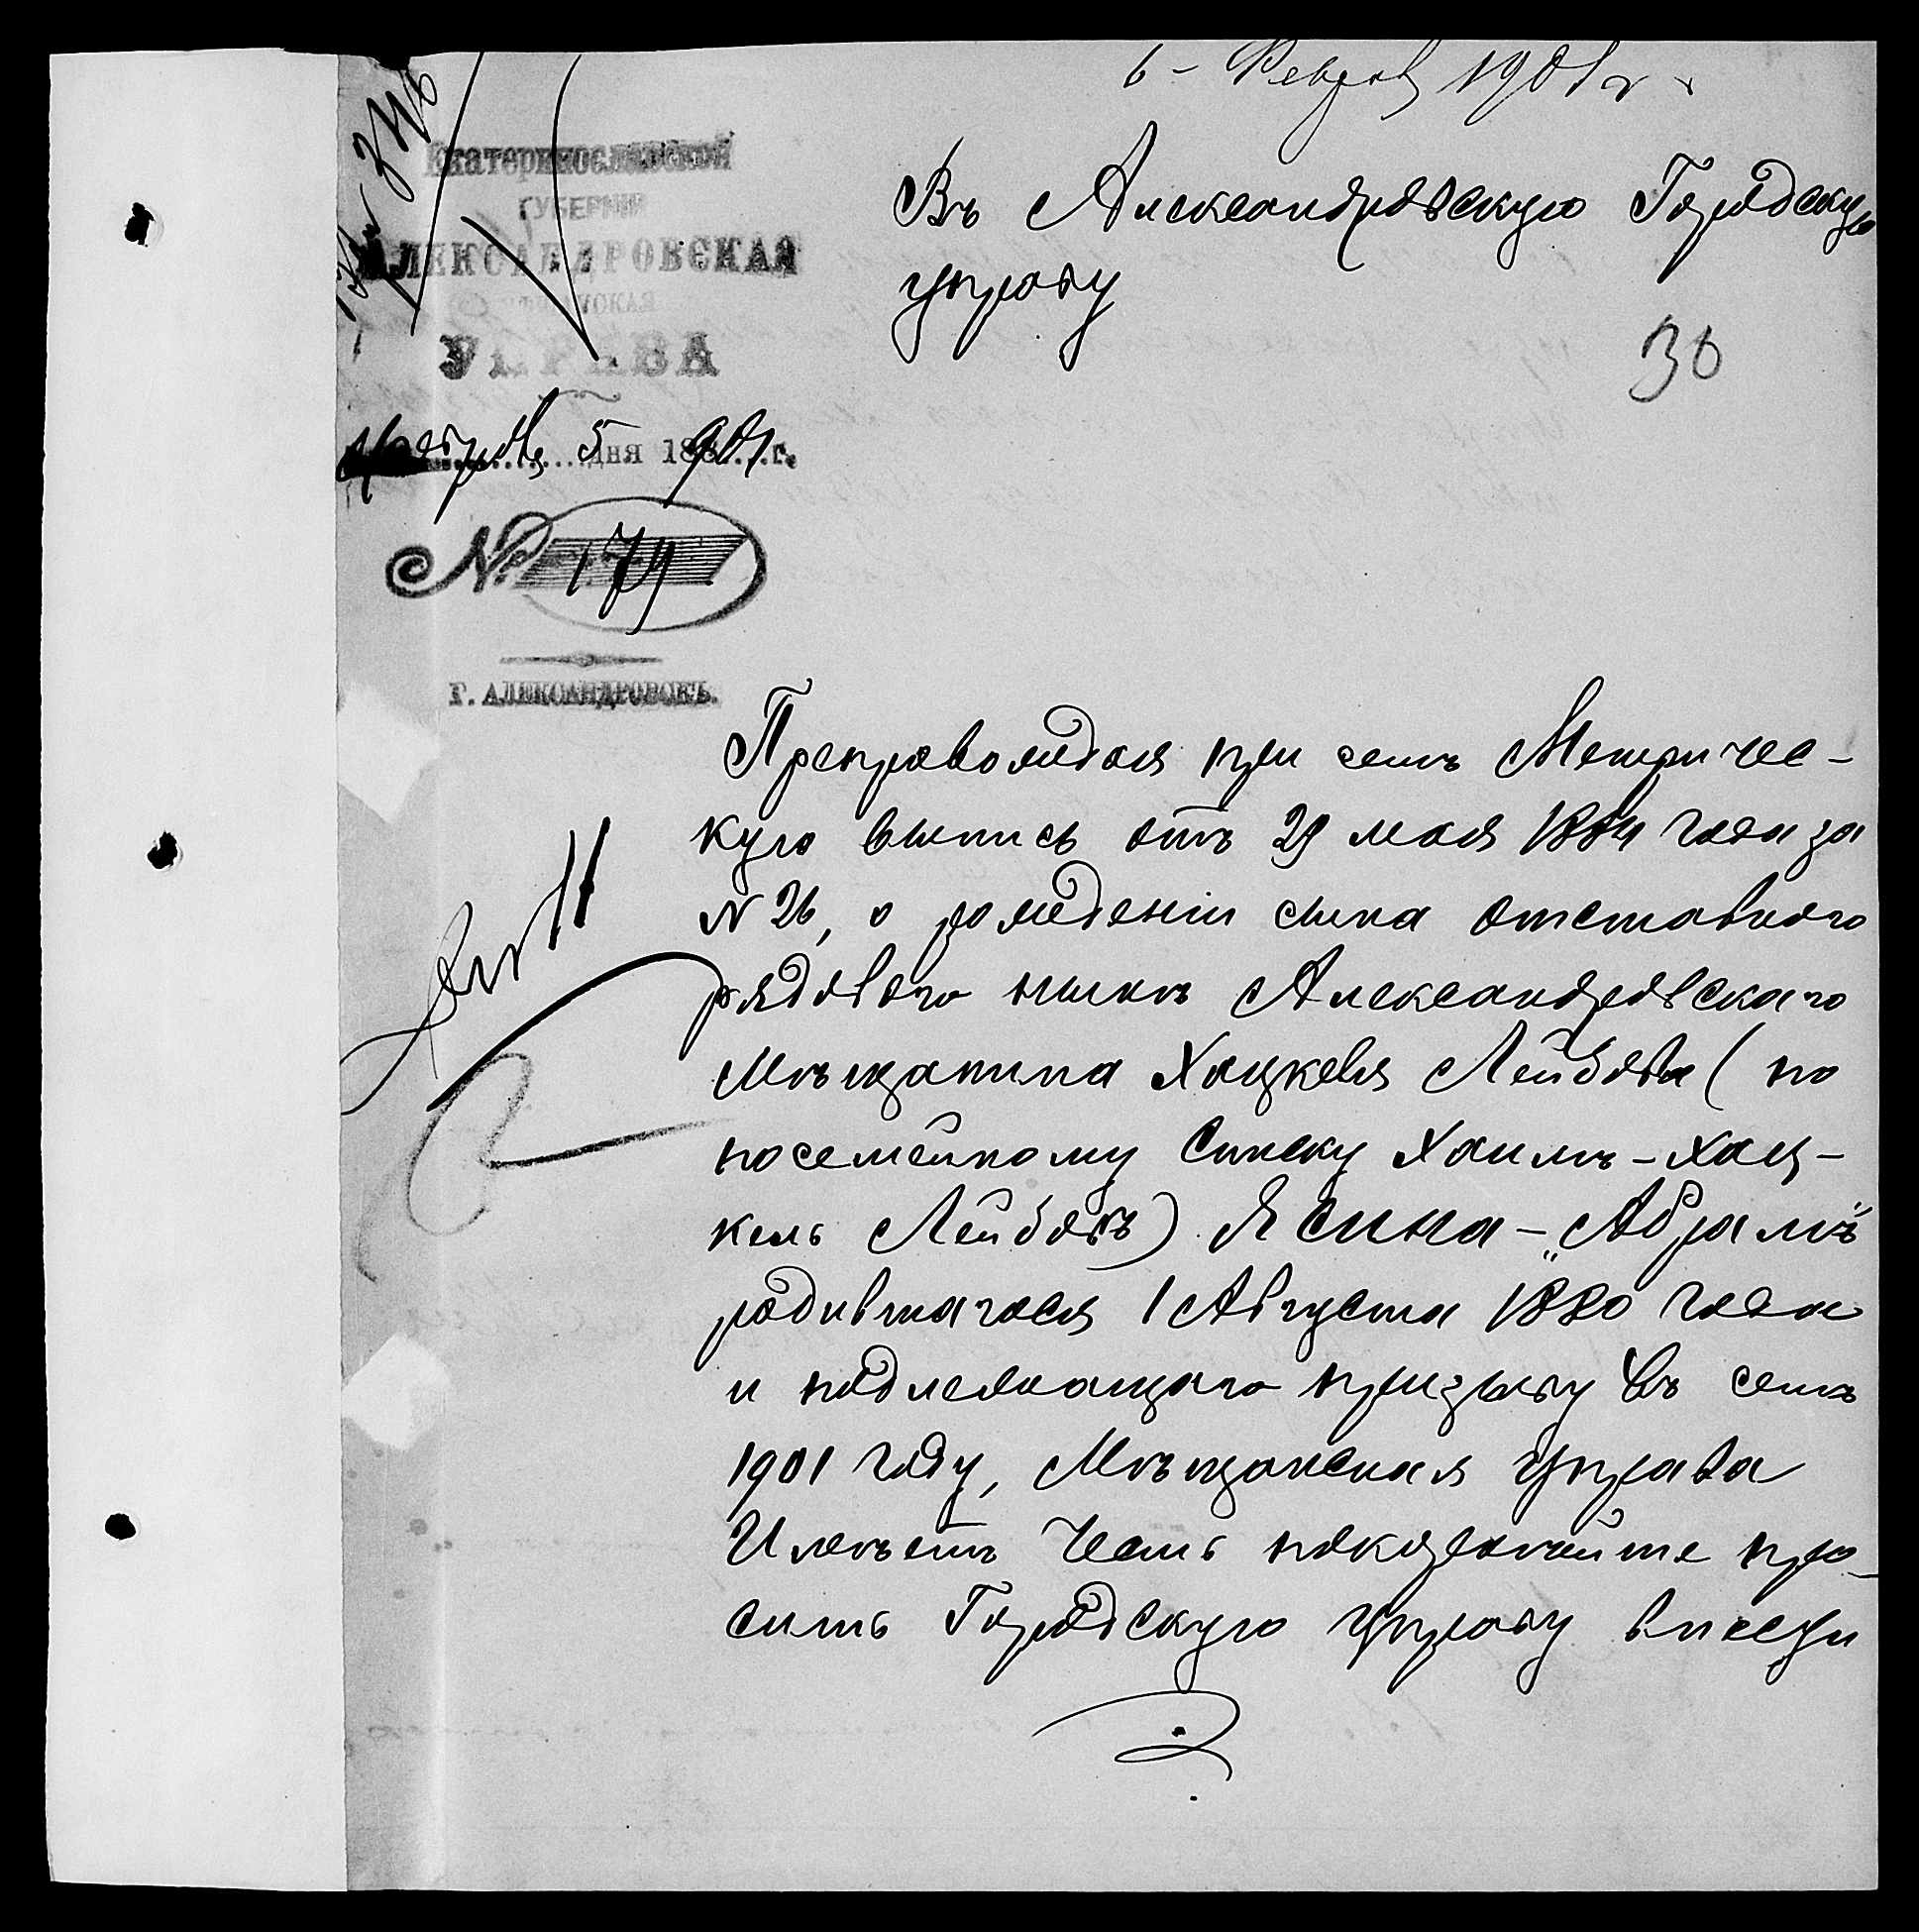 6 - Феврал 1901 г.
Екатеринославской
ГУБЕРНІИ
АЛЕКСАНДРОВСКАЯ
УПРАВА
Февраля 5 дня 1901 г.
№ 179
Г. АЛЕКСАНДРОВСКЪ.
Въ Александровскую Городскую
управу
30
Препровождая при семъ Метричес-
кую выпись отъ 29 мая 1884 года за
N 26, о рожденіи сына отставного
рядового нынѣ Александровскаго
Мѣщанина Хацкеля Лейбова (по
посемейному списку Хаимъ-Хац-
кель Лейбовъ) Ясина - „Абрамъ"
родившагося 1 Августа 1880 года
и подлежащаго призыву въ семъ
1901 году, Мѣщанская Управа
Имѣетъ Честь покорнѣйше про-
сить Городскую Управу внести